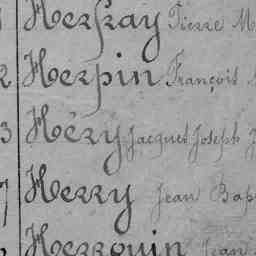 Herfray Pierre M
2 Herpin François
3 Héry Jacques Joseph
7 Herry Jean Bap
Herrouin Jean